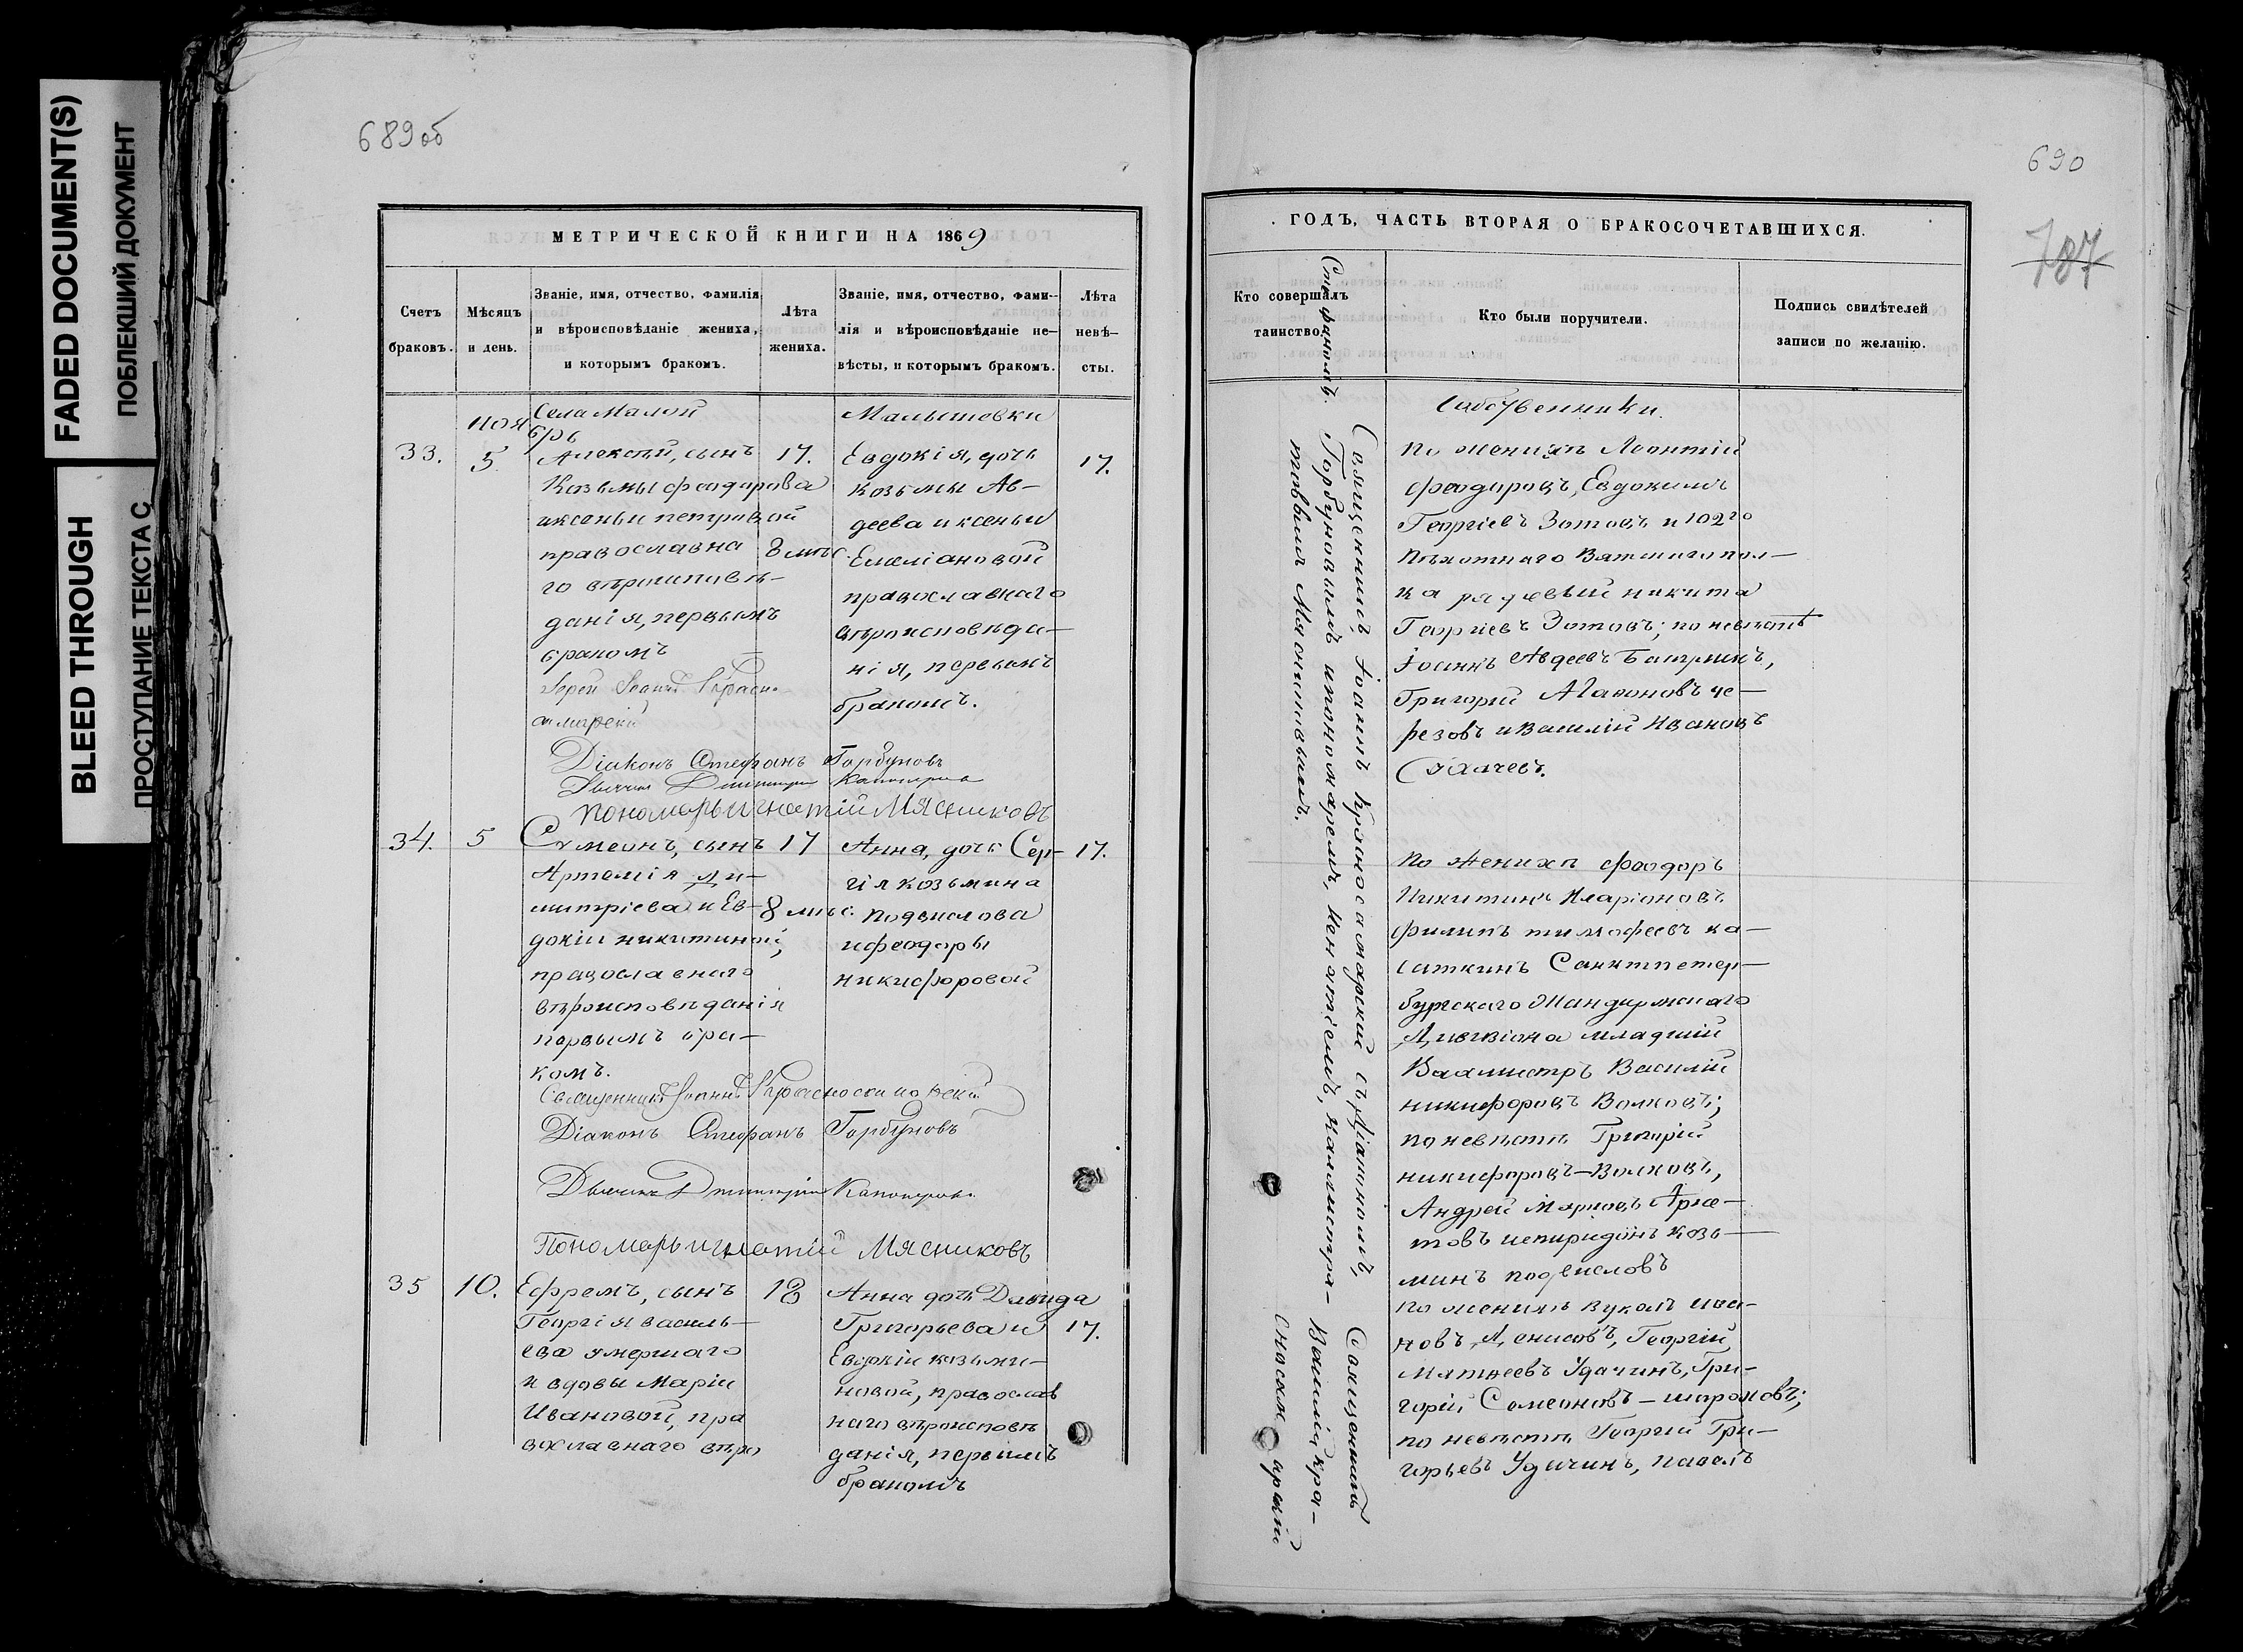 FADED DOCUMENT(S)
ПОБЛЕКШИЙ ДОКУМЕНТ
BLEED THROUGH
ПРОСТУПАНИЕ ТЕКСТА С
689об
МЕТРИЧЕСКОЙ КНИГИ НА 1869
Счетъ браковъ.
Мѣсяцъ и день.
Званіе, имя, отчество, фамилія
и вѣроисповѣданіе жениха,
и которымъ бракомъ.
Лѣта
жениха.
Званіе, имя, отчество, фами-
лія и вѣроисповѣданіе не-
вѣсты, и которымъ бракомъ.
Лѣта
невѣ-
сты.
Ноя
брь
Села Малой
Малышовки
33.
5
Алексѣй, сынъ
Козьмы Феодорова
и Ксеньи Петровой
православна
го вѣроисповѣ-
данія, первымъ
бракомъ
17.
8 мѣс.
Евдокія, дочь
Козьмы Ав-
деева и Ксеньи
Емеліановой
православнаго
вѣроисповѣда-
нія, первымъ
бракомъ.
17.
Іерей Іоаннъ Красно-
самарскій
Діаконъ Стефанъ Горбуновъ
Дьячекъ Дмитрій
Пономарь Игнатій Мясниковъ
34.
5
Сѵмеонъ, сынъ
Артемія Ди-
митріева и Ев-
докіи Никитиной,
православнаго
вѣроисповѣданія
первымъ бра-
комъ.
17
8 мѣс.
Анна, дочь Сер-
гія Козьмина
Подвислова
и Феодоры
Никифоровой
17.
Священникъ Іоаннъ Красносамарскій
Діаконъ Стефанъ Горбуновъ
Дьячекъ Дмитрій
Пономарь Игнатій Мясниковъ
35
10.
Ефремъ, сынъ
Георгія Василь-
ева умершаго
и вдовы Маріи
Ивановой, пра
вославнаго вѣро
18
Анна дочь Давида
Григорьева и
Евдокіи Козьми-
новой, православ
наго вѣроисповѣ
данія, первымъ
бракомъ
17.
690
787
ГОДЪ, ЧАСТЬ ВТОРАЯ О БРАКОСОЧЕТАВШИХСЯ.
Кто совершалъ
таинство.
Кто были поручители.
Подпись свидѣтелей
записи по желанію.
Священникъ Іоаннъ Красносамарскій съ Діакономъ
Стефаномъ Горбуновымъ и пономаремъ Игнатіемъ
Мясниковымъ.
Священникъ
Василій Кра-
сносамарскій
Собственники.
По женихѣ Леонтій
Феодоровъ, Евдокимъ
Георгіевъ Зотовъ и 102го
Пѣхотнаго Вятскаго пол-
ка рядовый Никита
Георгіевъ Зотовъ; по невѣстѣ
Іоаннъ Авдеевъ
Григорій Агафоновъ Че-
резовъ и Василій Ивановъ
По женихѣ Феодоръ
Никитинъ Иларіоновъ
Филипъ Тимофеевъ Ка-
саткинъ Санктпетер-
бургскаго Жандармскаго
Дивизіона младшій
Вахмистръ Василій
Никифоровъ Волковъ;
по невѣстѣ Григорій
Никифоровъ-Волковъ,
Андрей Марковъ
и Спиридонъ Козь-
минъ Подвисловъ
По женихѣ Вуколъ Ива-
новъ Денисовъ, Георгій
Матвеевъ Удачинъ, Гри-
горій Семеоновъ-
по невѣстѣ Георгій Гри-
горьевъ Удачинъ, Павелъ